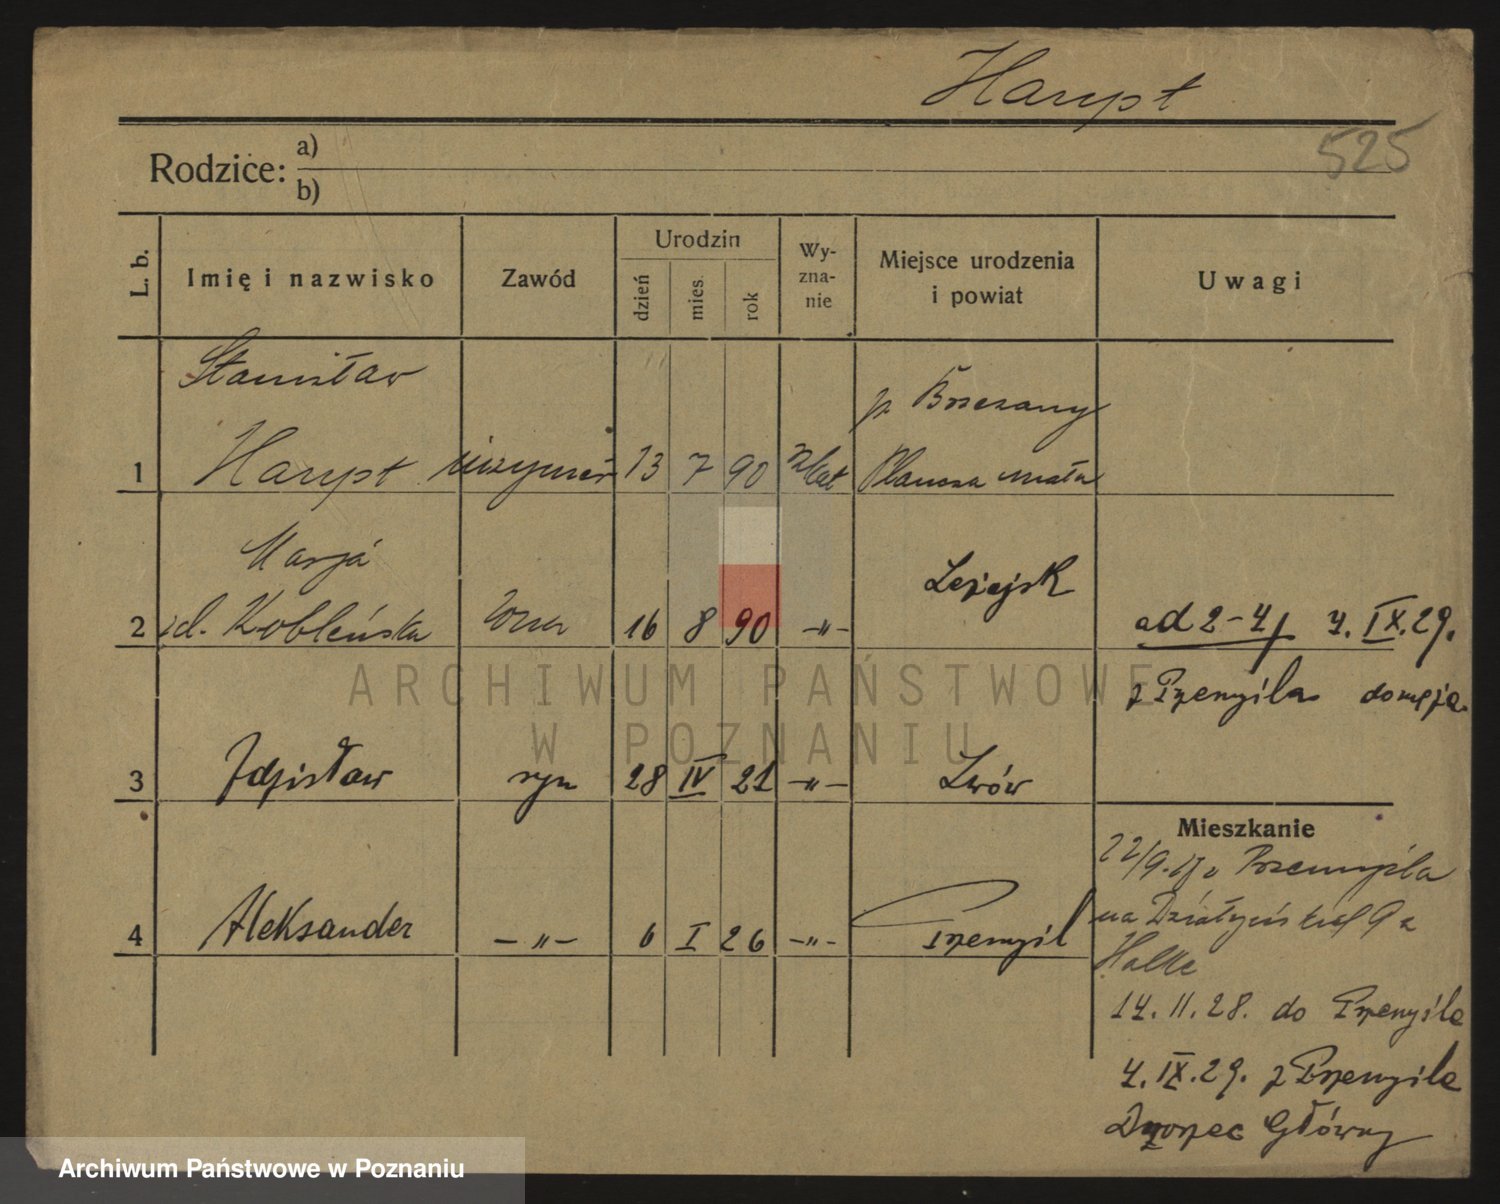 Haupt
525
Rodzice: a)
b)
L. b.
Imię i nazwisko
Zawód
Urodzin
dzień
mies.
rok
Wy-
zna-
nie
Miejsce urodzenia
i powiat
Uwagi
Stanisław
p. Brzezany
1 Haupt inżynier 13 7 90 rzkat Plaucza mała
Marja
Leżejsk
2 zd. Kobleńska żona 16 8 90 -"- ad 2-4/ 4. IX. 29.
z Przemyśla
ARCHIWUM PAŃSTWOWE
W POZNANIU
3 Zdzisław syn 28 IV 21 -"- Lwów
Mieszkanie
22/9. Przemyśla
4 Aleksander -"- 6 I 26 -"- Przemyśl
na Działyńskich 9
14. II. 28. do Przemyśla
4. IX. 29. z Przemyśla
Dworzec Główny
Archiwum Państwowe w Poznaniu